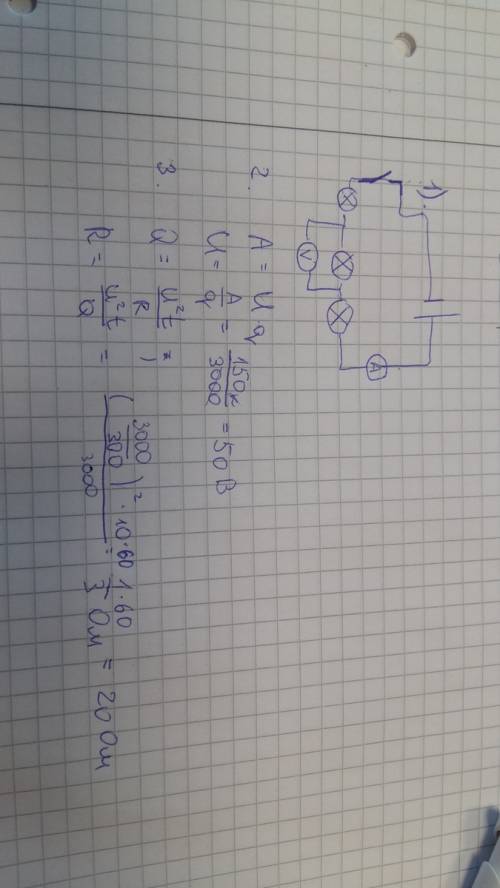 1).
A
V
2. A = U q
U = A/q = 150к/3000 = 50 В
3. Q = U²t/R ;
R = U²t/Q = (3000/300)² · 10 · 60 / 3000 = 1·60/3 Ом = 20 Ом